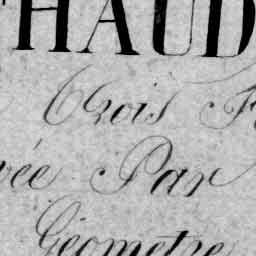 HAUD
Trois
vée Par
Géometre